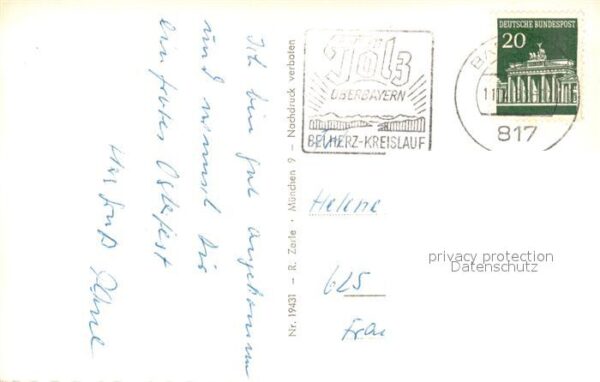 Ich bin gut angekommen
und wünsche Dir
ein frohes Osterfest
Nr. 19431 - R. Zarle · München 9 - Nachdruck verboten
Tölz
OBERBAYERN
BEI HERZ-KREISLAUF
BA
11
817
DEUTSCHE BUNDESPOST
20
Helene
625
Frau
privacy protection
Datenschutz